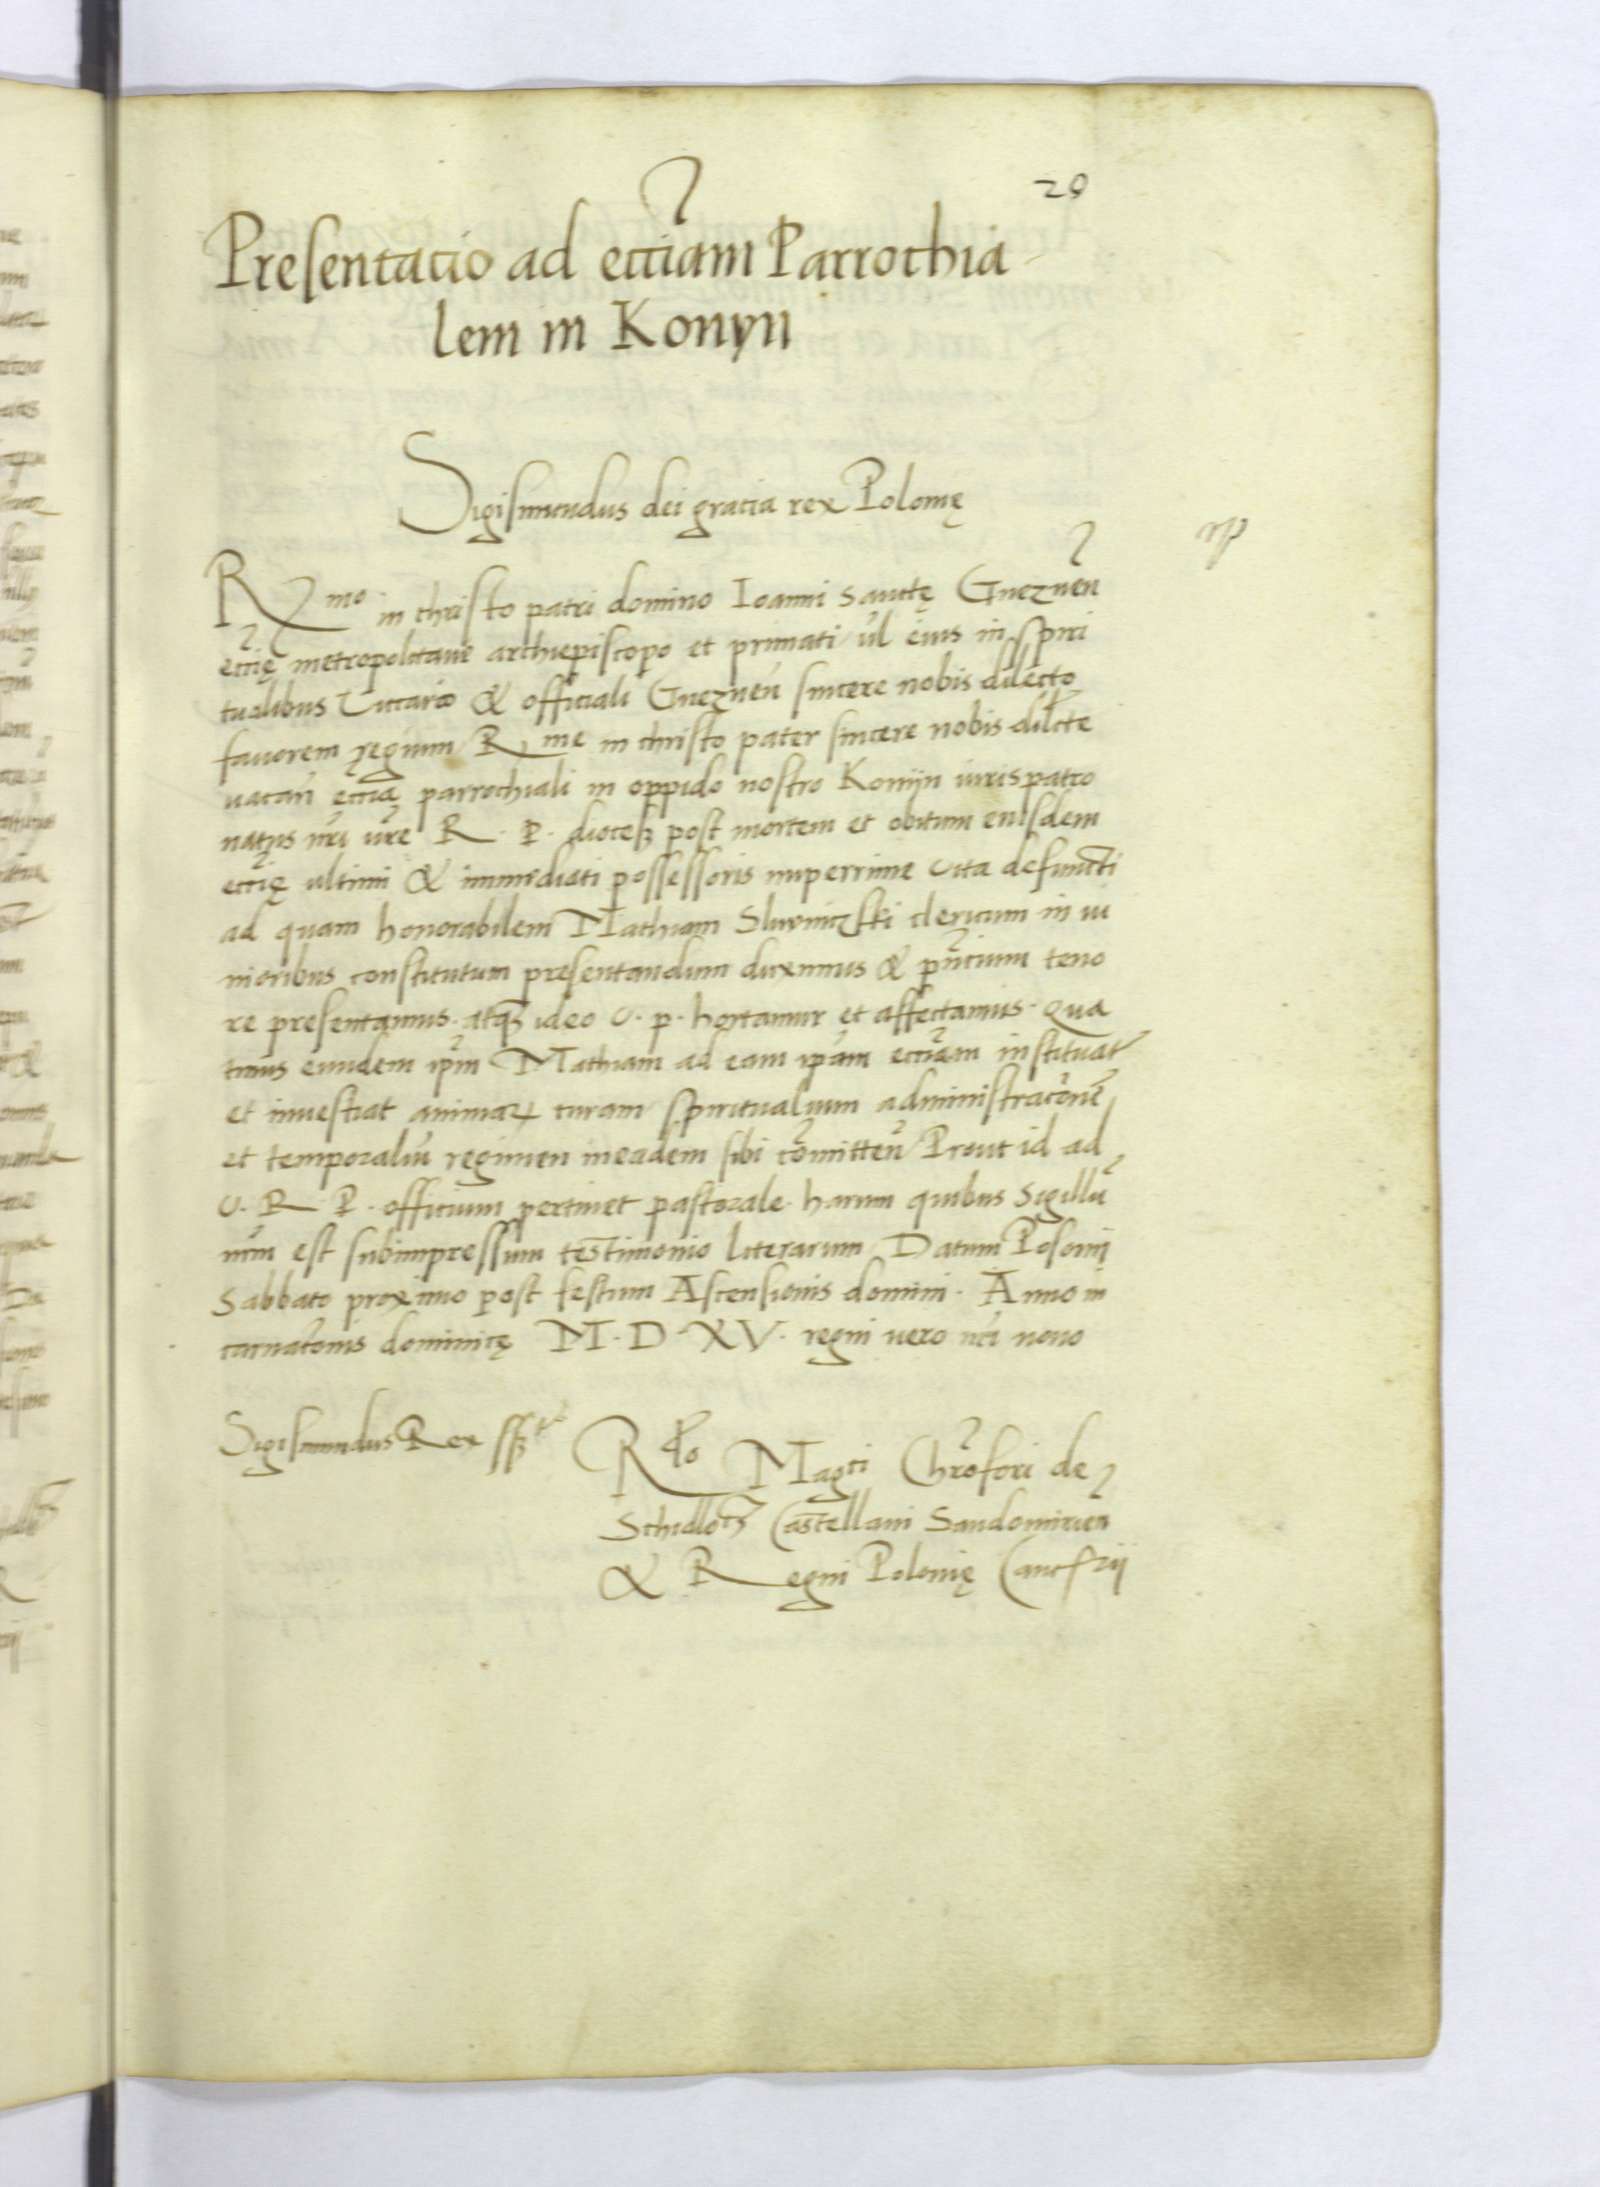 20
Presentatio ad eccĩam Parrochia
lem in Konyn
Sigismundus dei gratia rex Polonię
np
Rmo in christo patri domino Ioanni sanctę Gneznen̄
eccię metropolitane archiepiscopo et primati ul eius in spiri
tualibus Vicario & officiali Gneznen̄ sincere nobis dilecto
favorem regium Rme in christo pater sincere nobis dilcte
vacan̄ eccia parrochiali in oppido nostro Konijn iurispatro
natus nr̄i vr̄e R. P. dioces post mortem et obitum eiusdem
eccię ultimi & immediati possessoris nuperrime vita defuncti
ad quam honorabilem Mathiam Sluvniczski clericum in mi
noribus constitutum presentandum duximus & pn̄tium teno
re presentamus. atqȝ ideo v. p. hortamur et affectamus. Qua
tinus eundem ipm̄ Mathiam ad eam ipām ecciam instituat
et investiat animaꝝ curam spiritualium administracōnē
et temporaliū regimen ineadem sibi cōmitten̄ Prout id ad
V. R. P. officium pertinet pastorale. harum quibus sigillū
nr̄m est subimpressum testimonio literarum Datum Posonij
Sabbato proximo post festum Ascensionis domini. Anno in
carnacōnis dominicę M. D. XV. regni vero nr̄i nono
Sigismundus Rex ssȝt
Rdo Magci Chrōfori de
Schidloc Castellani Sandomirien̄
& Regni Polonię Cancrij